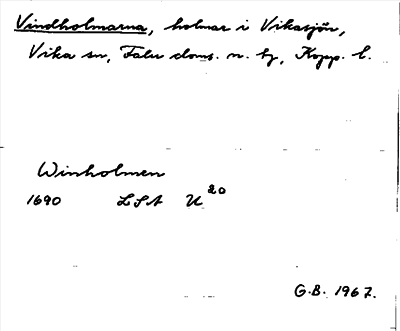 Vindholmarna, holmar i Vikasjön,
Vika sn, Falu doms. n. tg, Kopp. l.
Winholmen
1690 LSA U 20
G.B. 1967.